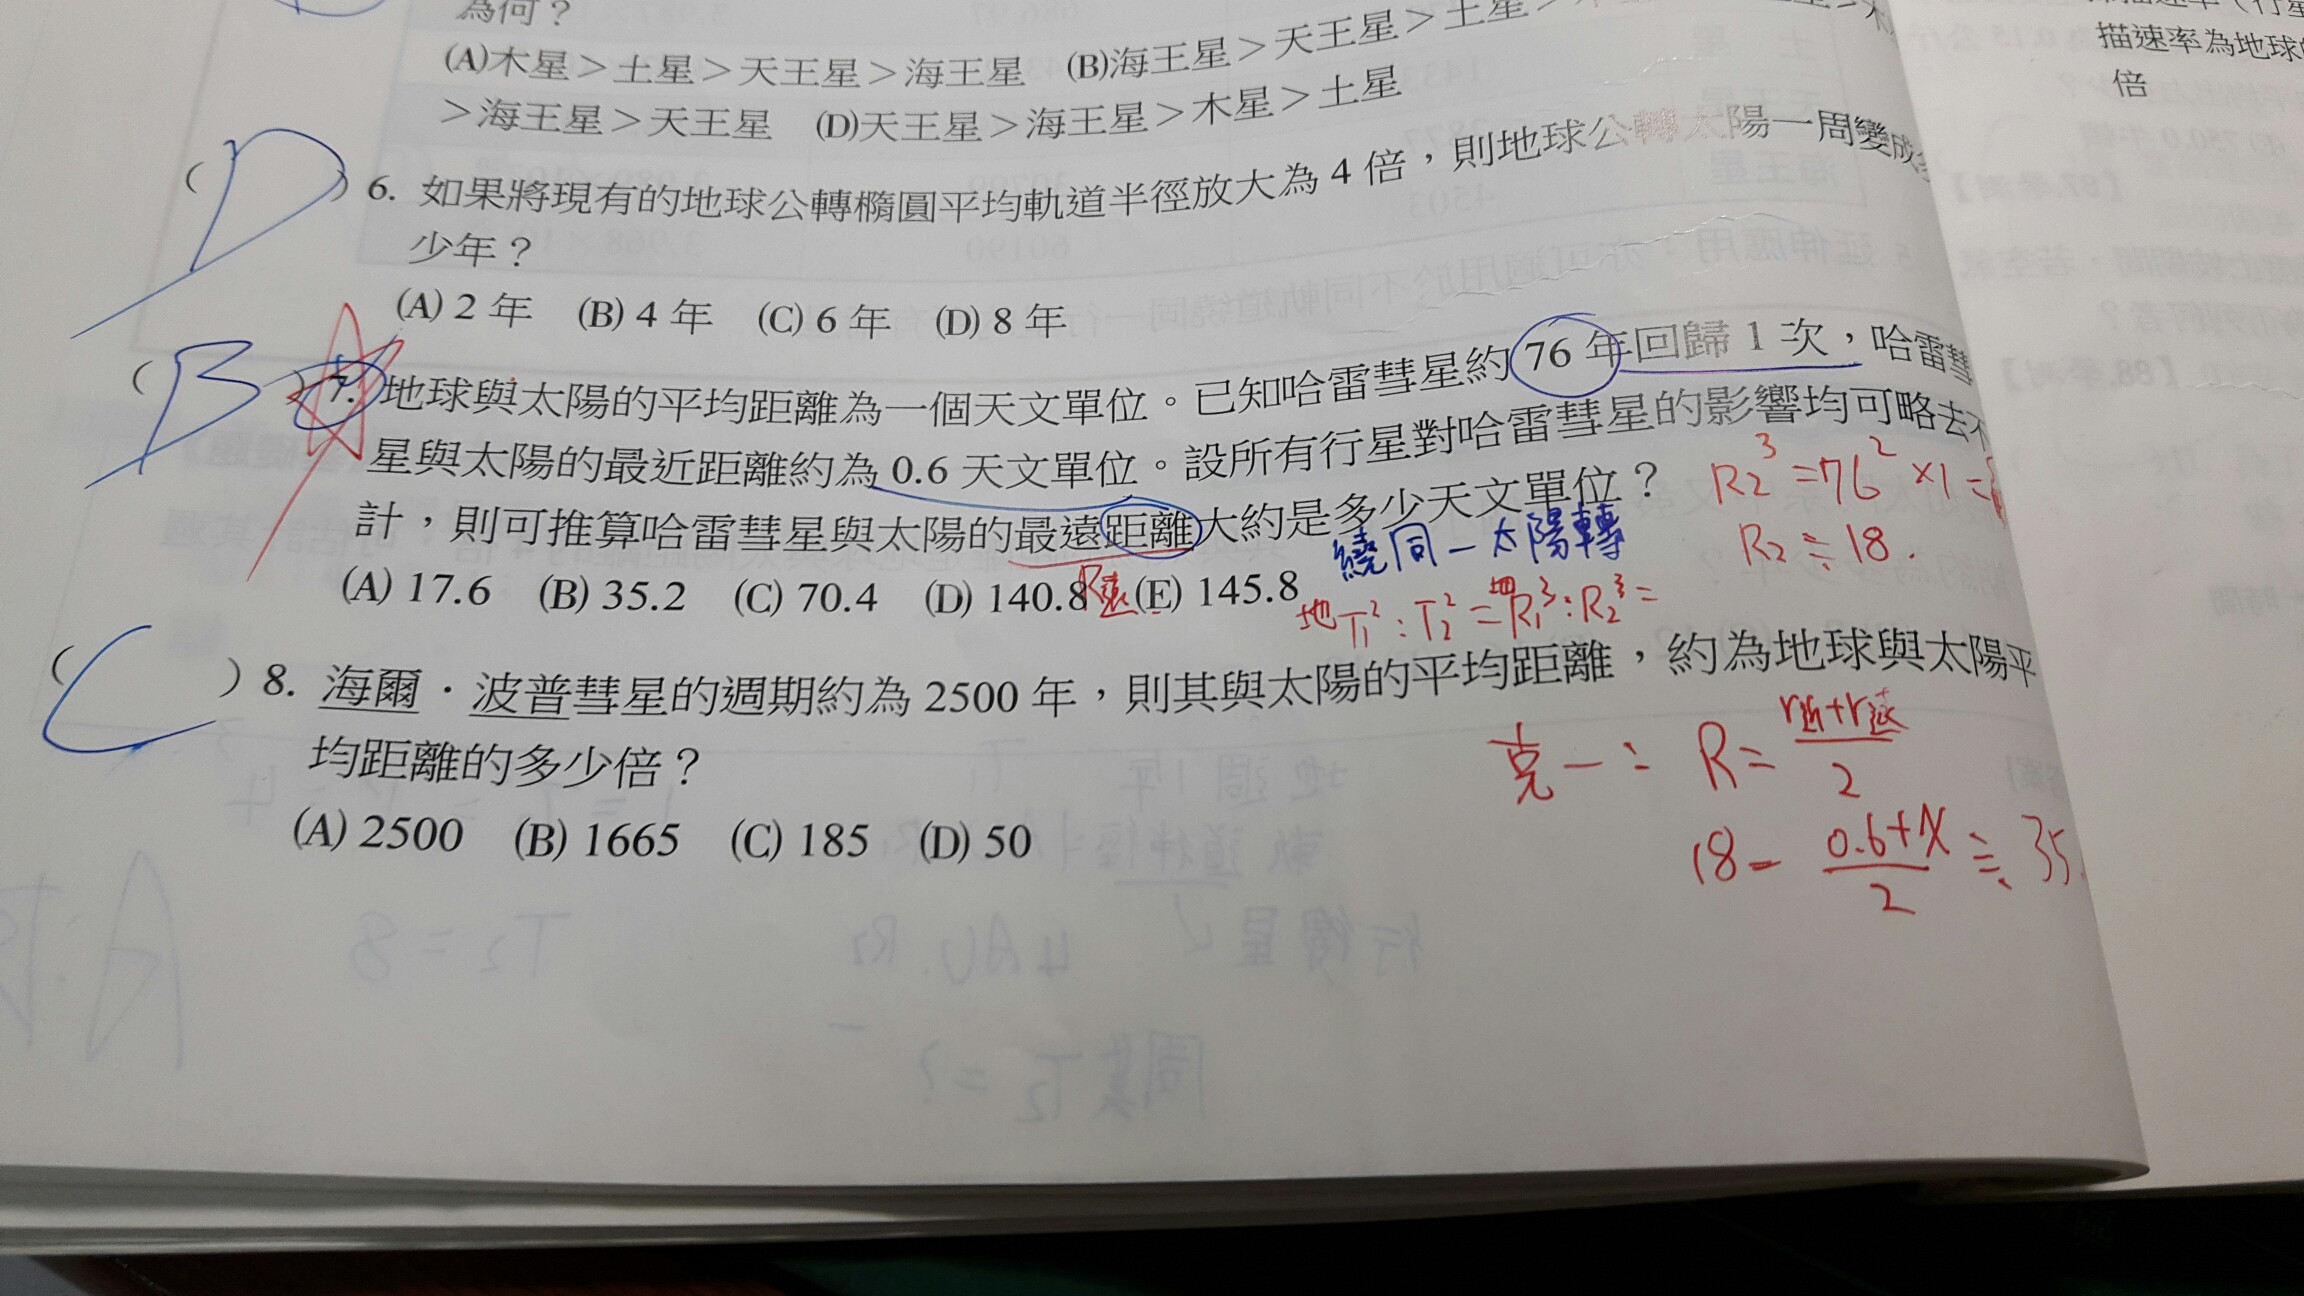 為何？
(A)木星＞土星＞天王星＞海王星　(B)海王星＞天王星＞土星＞
＞海王星＞天王星　(D)天王星＞海王星＞木星＞土星
D
( ) 6. 如果將現有的地球公轉橢圓平均軌道半徑放大為 4 倍，則地球公轉太陽一周變成
少年？
(A) 2 年　(B) 4 年　(C) 6 年　(D) 8 年
B
( ) 7. 地球與太陽的平均距離為一個天文單位。已知哈雷彗星約 76 年回歸 1 次，哈雷彗
星與太陽的最近距離約為 0.6 天文單位。設所有行星對哈雷彗星的影響均可略去不
計，則可推算哈雷彗星與太陽的最遠距離大約是多少天文單位？
(A) 17.6　(B) 35.2　(C) 70.4　(D) 140.8　(E) 145.8
R遠
繞同一太陽轉
地 T₁² : T₂² = 地R₁³ : R₂³ =
R₂³ = 76² × 1 =
R₂ ≒ 18.
C
( ) 8. 海爾．波普彗星的週期約為 2500 年，則其與太陽的平均距離，約為地球與太陽平
均距離的多少倍？
(A) 2500　(B) 1665　(C) 185　(D) 50
克一： R = r近+r遠 / 2
18 = 0.6+X / 2 ≒ 35
描速率為地球的
倍